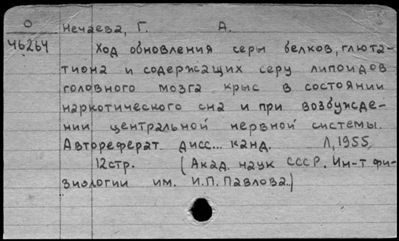 О Нечаева, Г. А.
46264 Ход обновления серы белков, глюта-
тиона и содержащих серу липоидов
головного мозга крыс в состоянии
наркотического сна и при возбужде-
нии центральной нервной системы.
Автореферат дисс... канд. Л, 1955
12стр. (Акад. наук СССР. Ин-т фи-
зиологии им. И.П. Павлова.)